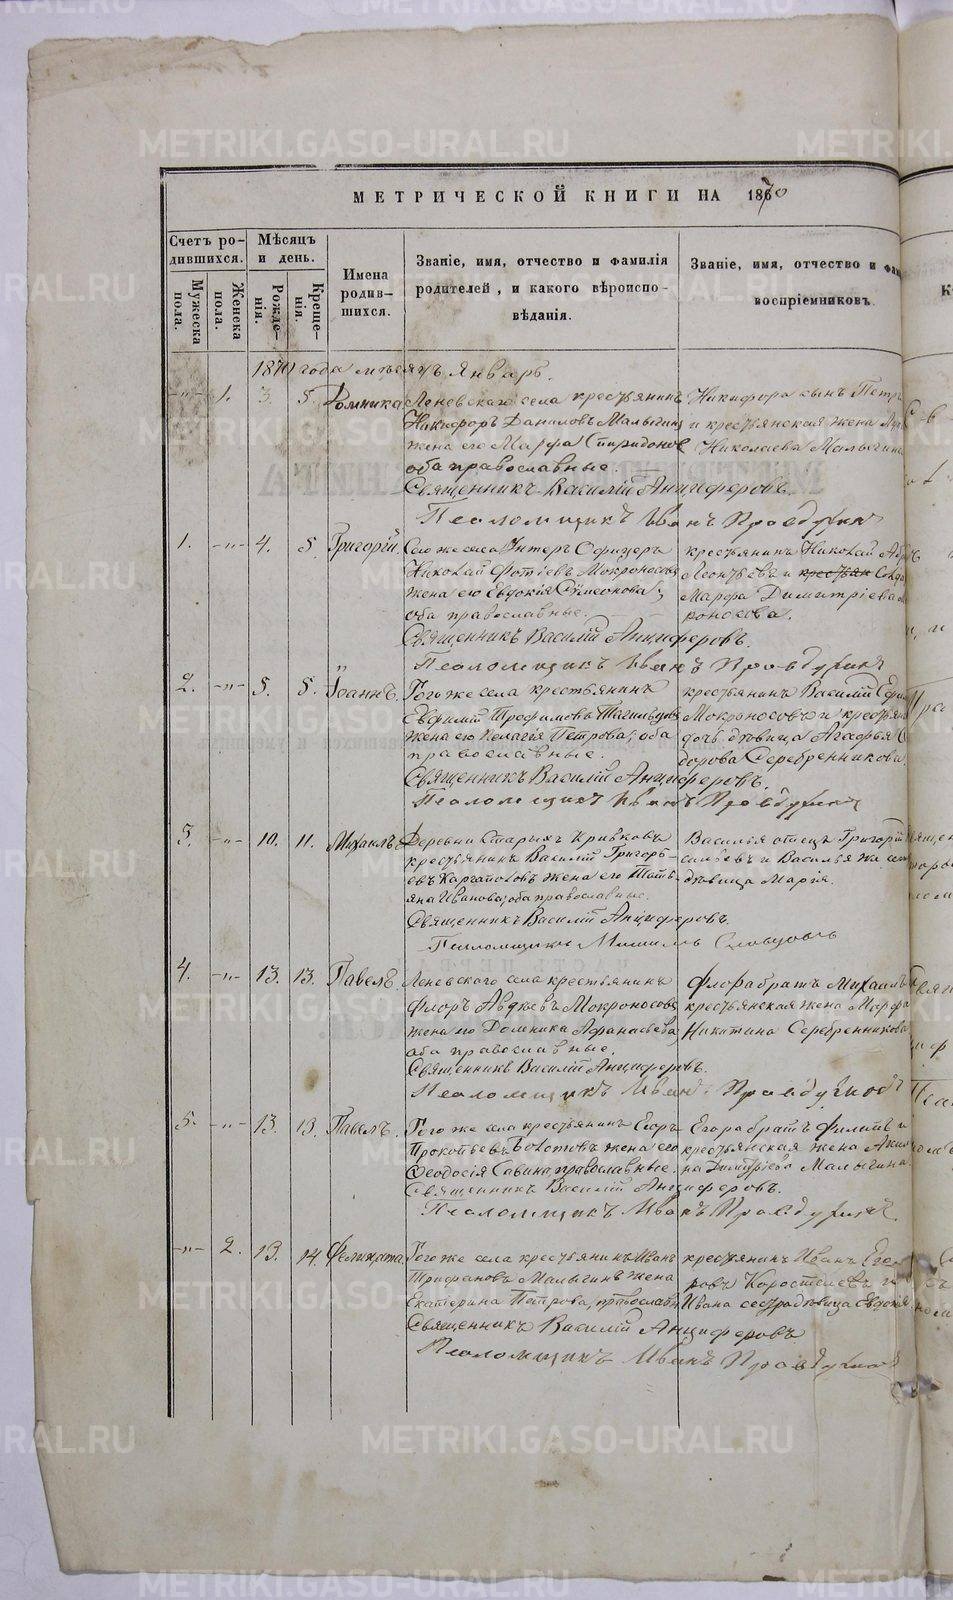 МЕТРИЧЕСКОЙ КНИГИ НА 1870
Счетъ ро-
дившихся.
Мѣсяцъ
и день.
Мужеска
пола.
Женска
пола.
Рожде-
нія.
Креще-
нія.
Имена
родив-
шихся.
Званіе, имя, отчество и фамилія
родителей, и какого вѣроиспо-
вѣданія.
Званіе, имя, отчество и фам
воспріемниковъ
1870 года мѣсяцъ Январь.
-"- 1. 3. 5. Домника
Леневскаго села крестьянинъ
Никифоръ Даниловъ Малыгинъ
жена его Марфа Спиридонов
оба православные.
Священникъ Василій Анциферовъ.
Псаломщикъ Иванъ Правдухин
Никифора сынъ Петръ
и крестьянская жена
Николаева Малыгина
1. -"- 4. 5. Григорій.
Того же села Унтеръ Офицеръ
Николай Фотіевъ Мокроносовъ
жена его Евдокія Симеонова,
оба православные.
Священникъ Василій Анциферовъ.
Псаломщикъ Иванъ Правдухин
крестьянинъ Николай
Леонтьевъ и крестьян Солда
Марфа Димитріева
роносова.
2. -"- 5. 5. Іоаннъ.
Того же села крестьянинъ
Евфимій Трофимовъ Тагильцовъ
жена его Пелагія Петрова, оба
православные.
Священникъ Василій Анциферовъ.
Псаломщикъ Иванъ Правдухин
крестьянинъ Василій
Мокроносовъ и крестьян
дочь дѣвица Агафья
дорова Серебренникова.
3. -"- 10. 11. Михаилъ.
Деревни Старыхъ Кривковъ
крестьянинъ Василій Григорь-
евъ Каргаполовъ жена его Тать-
яна Иванова, оба православные.
Священникъ Василій Анциферовъ.
Псаломщикъ
Василья отецъ Григорій
сильевъ и Василья же сест
дѣвица Марія.
4. -"- 13. 13. Павелъ.
Леневского села крестьянинъ
Флоръ Авдѣевъ Мокроносовъ
жена его Домника Афанасьева,
оба православные.
Священникъ Василій Анциферовъ.
Псаломщикъ Иванъ Правдухинъ
Флора братъ Михаилъ
крестьянская жена Марфа
Никитина Серебренникова
5. -"- 13. 13. Павелъ.
Того же села крестьянинъ Егоръ
Прокопьевъ Болотовъ жена его
Феодосія Савина православные.
Священникъ Василій Анциферовъ.
Псаломщикъ Иванъ Правдухин
Егора братъ Филипъ и
крестьянская жена Акили
на Димитріева Малыгина.
-"- 2. 13. 14. Фелицата.
Того же села крестьянинъ Иванъ
Трифановъ Малыгинъ жена
Екатерина Петрова, православн
Священникъ Василій Анциферовъ
Псаломщикъ Иванъ Правдухин
крестьянинъ Иванъ Его
ровъ Коростелевъ и
Ивана сестра дѣвица Евдокія
METRIKI.GASO-URAL.RU